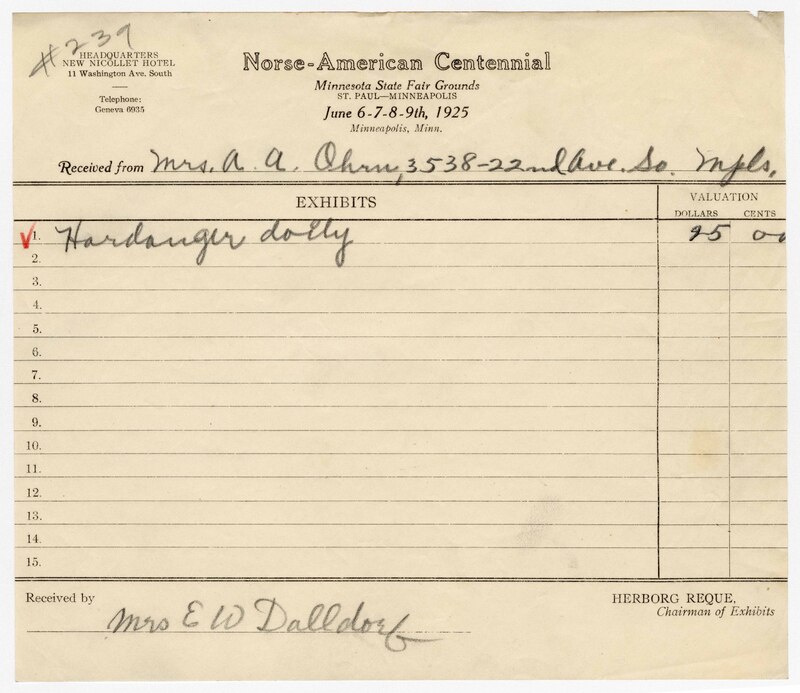 #239
HEADQUARTERS
NEW NICOLLET HOTEL
11 Washington Ave. South
Telephone:
Geneva 6935
Norse-American Centennial
Minnesota State Fair Grounds
ST. PAUL—MINNEAPOLIS
June 6-7-8-9th, 1925
Minneapolis, Minn.
Received from Mrs. A. A. Ohrn, 3538-22nd Ave. So. Mpls.
EXHIBITS
VALUATION
DOLLARS CENTS
✓ 1. Hardanger doily 25 00
2.
3.
4.
5.
6.
7.
8.
9.
10.
11.
12.
13.
14.
15.
Received by Mrs E W Dalldorf
HERBORG REQUE,
Chairman of Exhibits